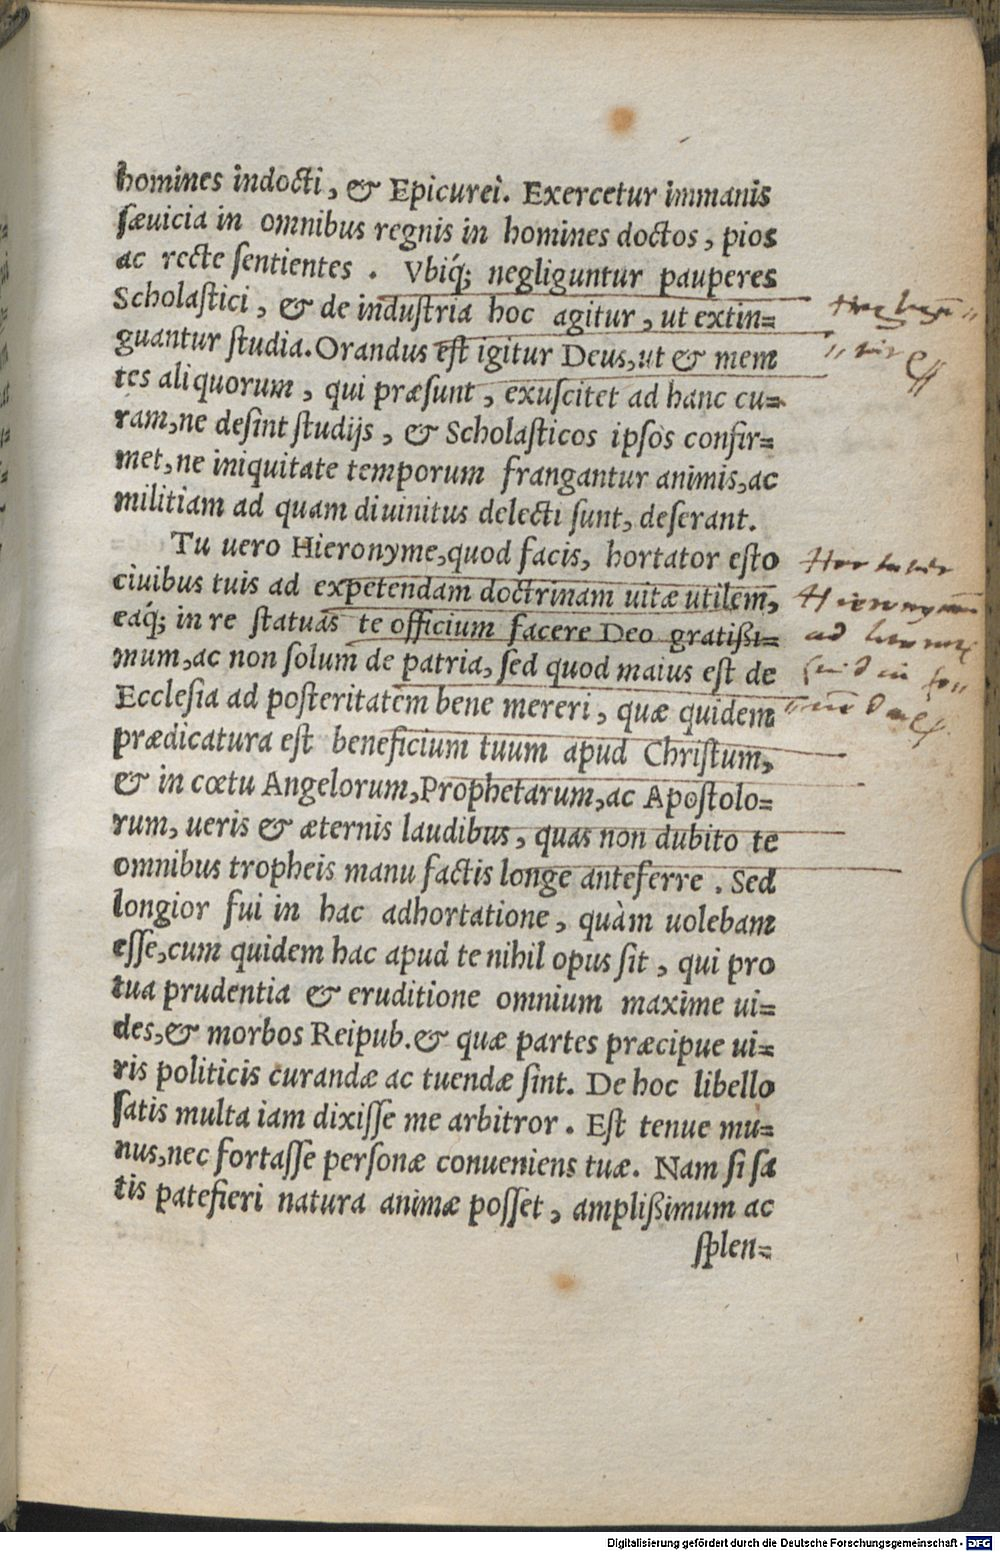 homines indocti, & Epicurei. Exercetur immanis
sæuicia in omnibus regnis in homines doctos, pios
ac recte sentientes . Vbiq́; negliguntur pauperes
Scholastici, & de industria hoc agitur, ut extin=
guantur studia. Orandus est igitur Deus, ut & mem
tes aliquorum, qui præsunt, exuscitet ad hanc cu=
ram, ne desint studijs, & Scholasticos ipsos confir=
met, ne iniquitate temporum frangantur animis, ac
militiam ad quam diuinitus delecti sunt, deserant.
Tu uero Hieronyme, quod facis, hortator esto
ciuibus tuis ad expetendam doctrinam uitæ utilem,
eaq́; in re statuas te officium facere Deo gratißi=
mum, ac non solum de patria, sed quod maius est de
Ecclesia ad posteritatem bene mereri, quæ quidem
prædicatura est beneficium tuum apud Christum,
& in cœtu Angelorum, Prophetarum, ac Apostolo=
rum, ueris & æternis laudibus, quas non dubito te
omnibus tropheis manu factis longe anteferre . Sed
longior fui in hac adhortatione, quàm uolebam
esse, cum quidem hac apud te nihil opus sit, qui pro
tua prudentia & eruditione omnium maxime ui=
des, & morbos Reipub. & quæ partes præcipue ui=
ris politicis curandæ ac tuendæ sint. De hoc libello
satis multa iam dixisse me arbitror. Est tenue mu=
nus, nec fortasse personæ conueniens tuæ. Nam si sa
tis patefieri natura animæ posset, amplißimum ac
splen=
Hortatur
Hieronymum
ad
Digitalisierung gefördert durch die Deutsche Forschungsgemeinschaft - DFG